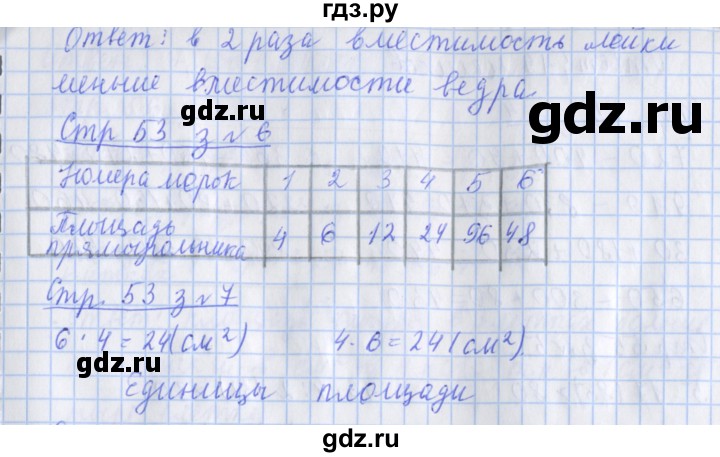 гдз.ру
Ответ: в 2 раза вместимость лейки
меньше вместимости ведра
gdz.ru gdz.ru
Стр 53 з № 6
Номера морок 1 2 3 4 5 6
Площадь прямоугольника 4 6 12 24 96 48
Стр. 53 з № 7
gdz.ru gdz.ru
6 · 4 = 24 (см²) 4 · 6 = 24 (см²)
Единицы площади
gdz.ru